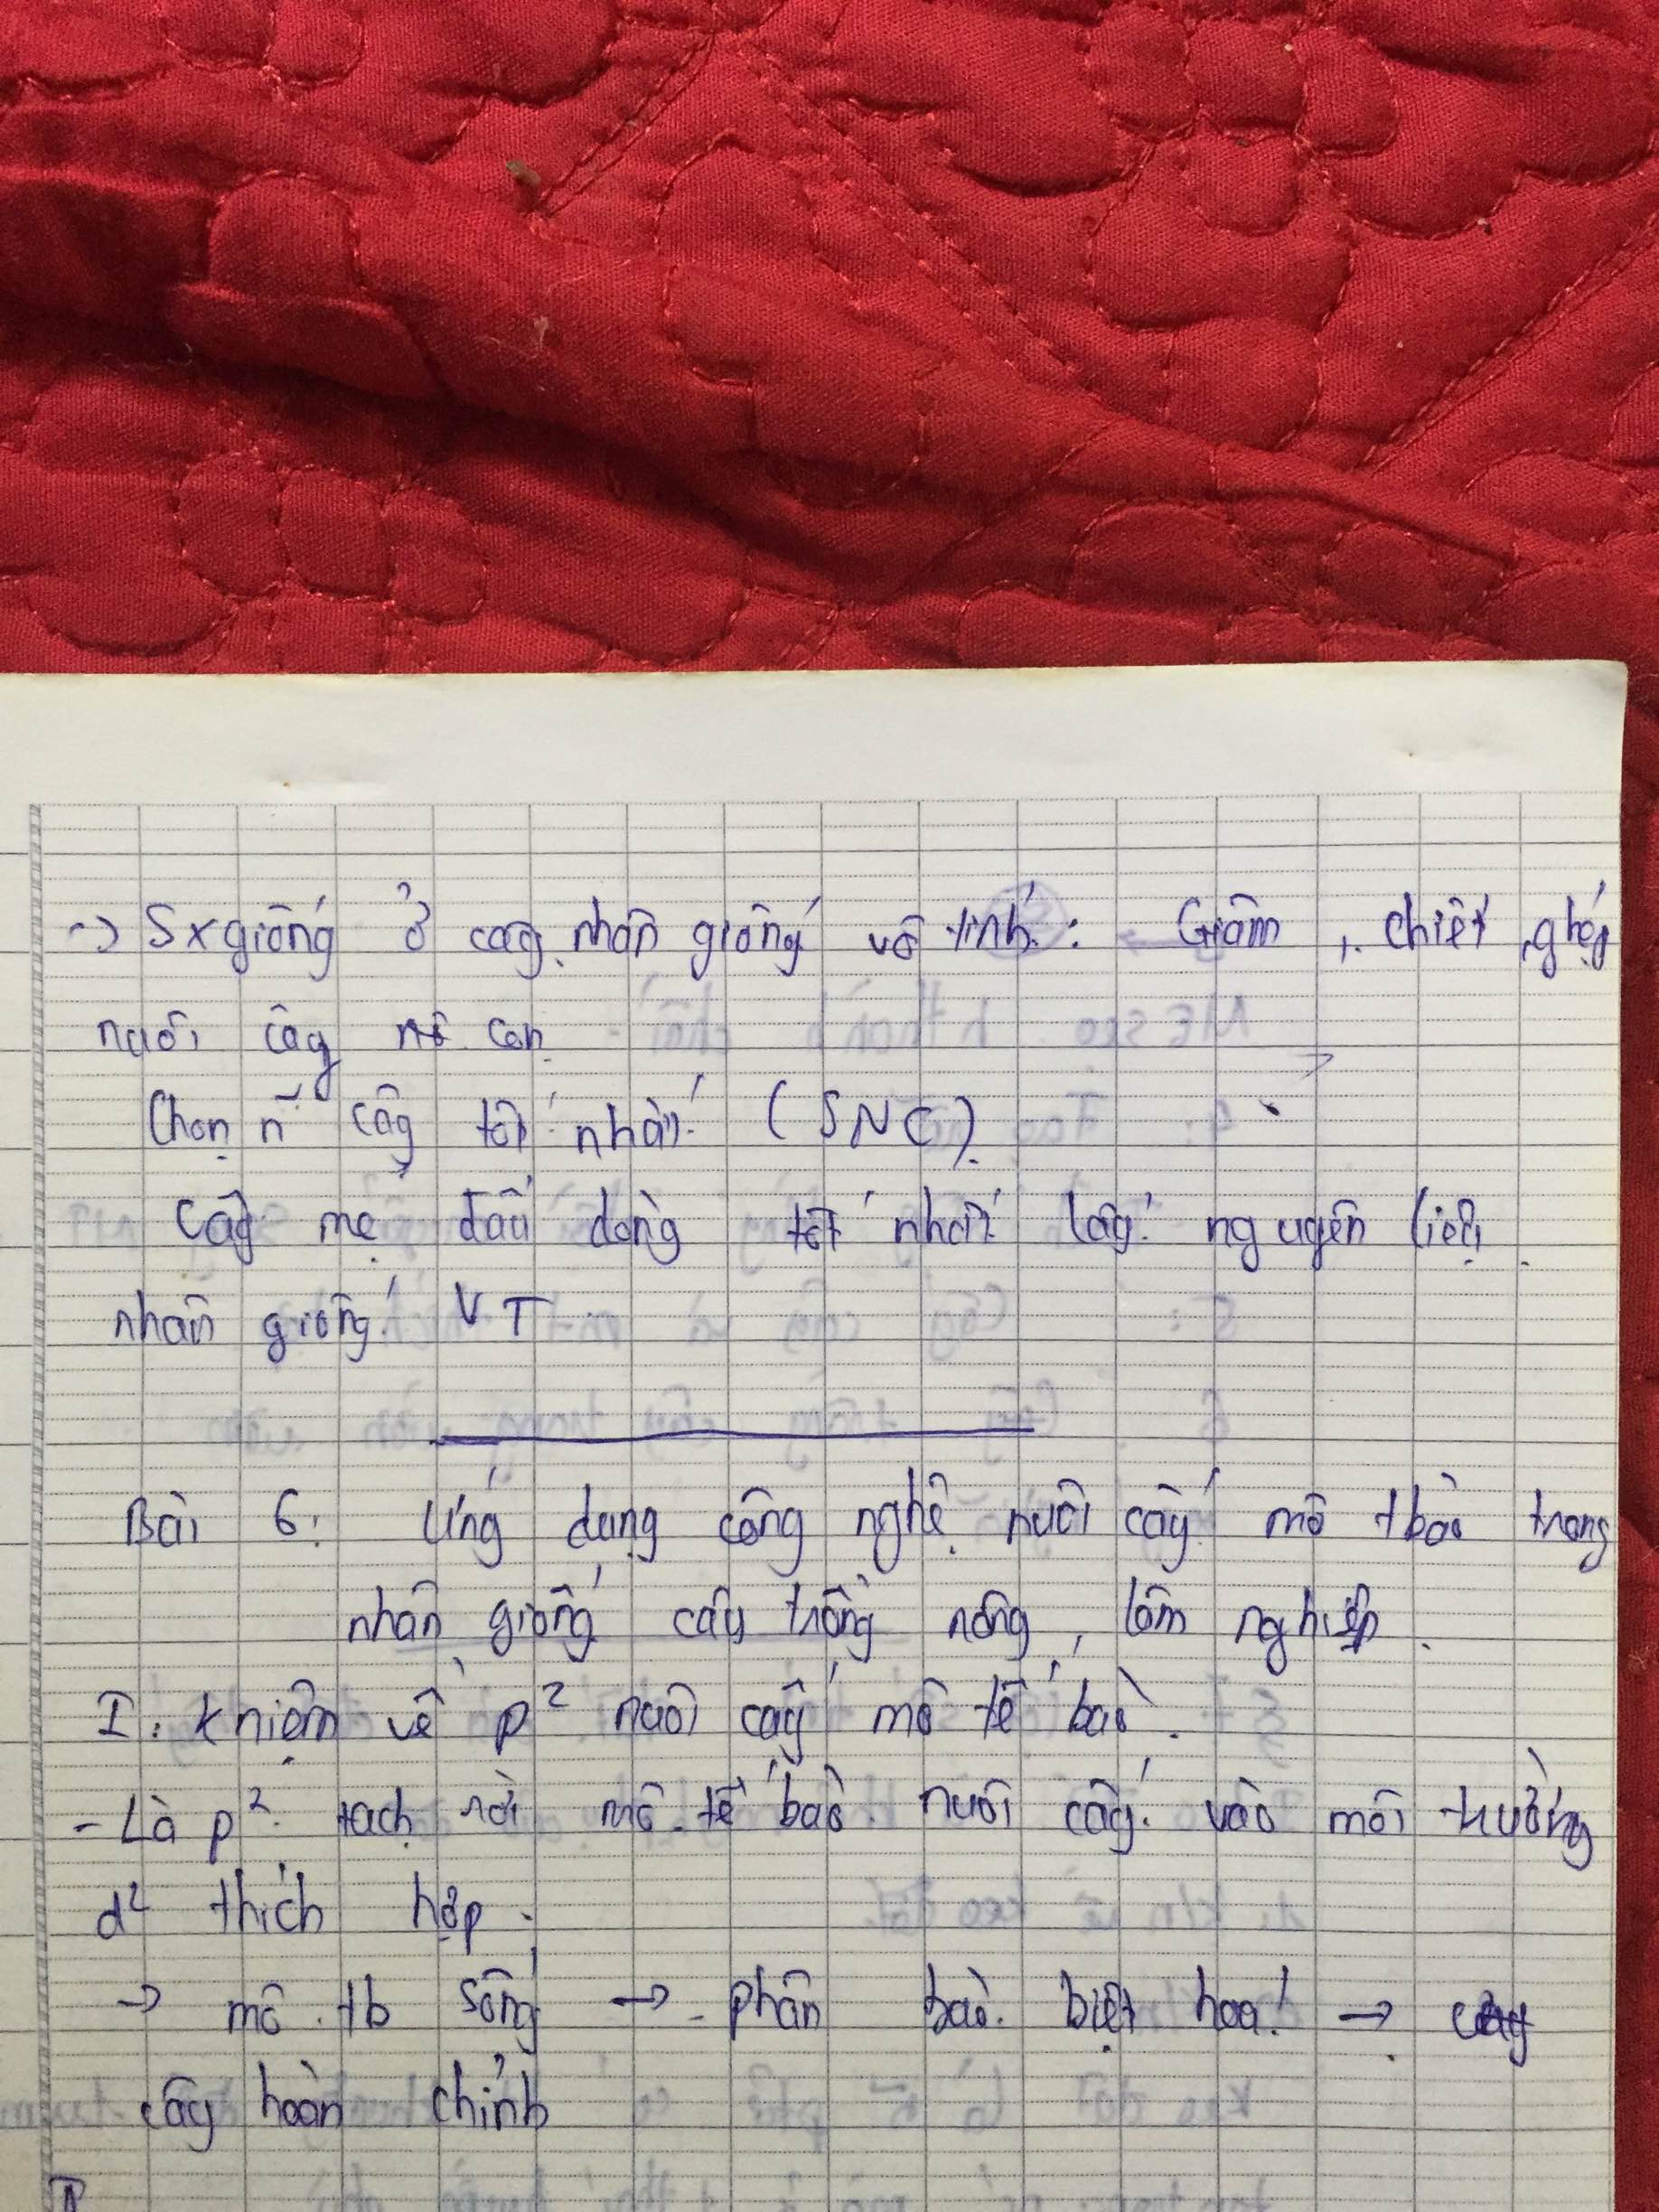 -> Sx giống ở cây nhân giống vô tính: Giâm, chiết, ghép
nuôi cấy mô con
Chọn n~ cây tốt nhất (SNC).
Cây mẹ đầu dòng tốt nhất lấy nguyên liệu
nhân giống VT
Bài 6: Ứng dụng công nghệ nuôi cấy mô tbào trong
nhân giống cây trồng nông, lâm nghiệp.
I. Kniệm về p² nuôi cấy mô tế bào.
- Là p² tách rời mô tế bào nuôi cấy vào môi trường
d² thích hợp.
-> mô tb sống -> phân bào biệt hoá -> cây
cây hoàn chỉnh